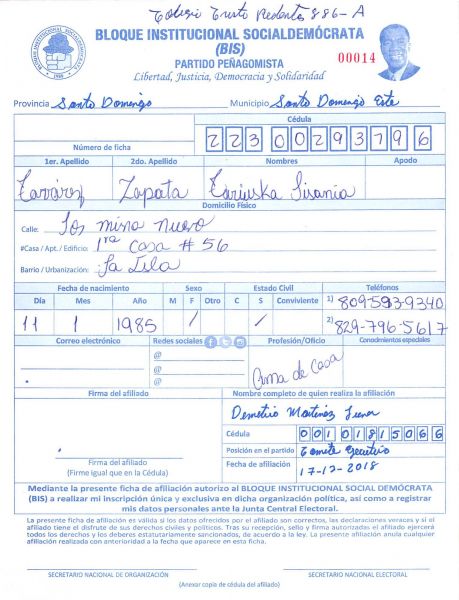 Colegio Cristo Redentor 886-A
BLOQUE INSTITUCIONAL SOCIALDEMÓCRATA
(BIS)
PARTIDO PEÑAGOMISTA
Libertad, Justicia, Democracia y Solidaridad
00014
BLOQUE INSTITUCIONAL SOCIALDEMOCRATA
Provincia Santo Domingo Municipio Santo Domingo Este
Número de ficha
Cédula
22300293796
1er. Apellido 2do. Apellido Nombres Apodo
Tavárez Zapata
Domicilio Físico
Calle: Los mina nuevo
#Casa / Apt. / Edificio: 1ra Casa # 56
Barrio / Urbanización: La Isla
Fecha de nacimiento Sexo Estado Civil Teléfonos
Día Mes Año M F Otro C S Conviviente
11 1 1985 / /
1) 809-593-9340
2) 829-796-5617
Correo electrónico Redes sociales Profesión/Oficio Conocimientos especiales
@
@
@
Ama de Casa
Firma del afiliado
Nombre completo de quien realiza la afiliación
Demetrio Martinez
Cédula 00101815066
Posición en el partido Comité Ejecutivo
Fecha de afiliación 17-12-2018
Firma del afiliado
(Firme igual que en la Cédula)
Mediante la presente ficha de afiliación autorizo al BLOQUE INSTITUCIONAL SOCIAL DEMÓCRATA
(BIS) a realizar mi inscripción única y exclusiva en dicha organización política, así como a registrar
mis datos personales ante la Junta Central Electoral.
La presente ficha de afiliación es válida si los datos ofrecidos por el afiliado son correctos, las declaraciones veraces y si el
afiliado tiene el disfrute de sus derechos civiles y políticos. Tras su recepción, sello y firma autorizados el afiliado ejercerá
todos los derechos y los deberes estatutariamente sancionados, de acuerdo a la ley. La presente afiliación anula cualquier
afiliación realizada con anterioridad a la fecha que aparece en esta ficha.
SECRETARIO NACIONAL DE ORGANIZACIÓN
SECRETARIO NACIONAL ELECTORAL
(Anexar copia de cédula del afiliado)